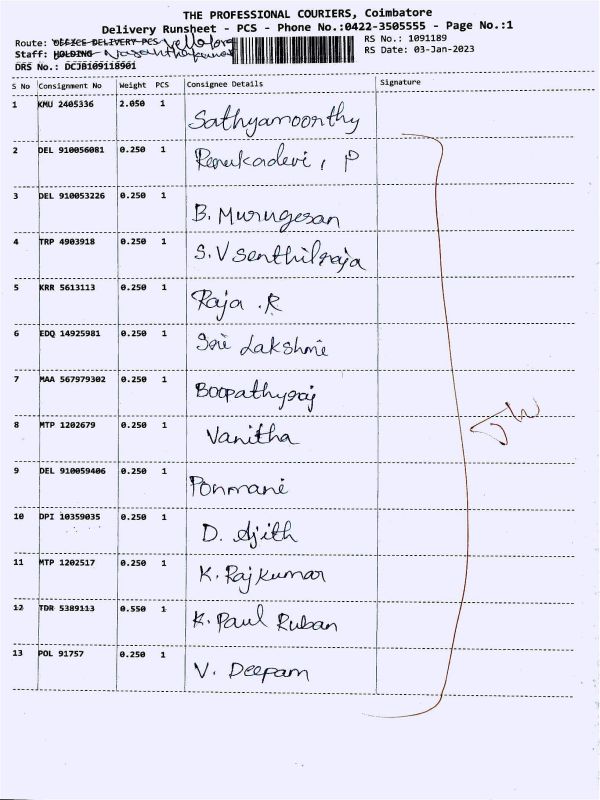 THE PROFESSIONAL COURIERS, Coimbatore
Delivery Runsheet - PCS - Phone No.:0422-3505555 - Page No.:1
Route: OFFICE DELIVERY PCS
RS No.: 1091189
Staff: HOLDING
RS Date: 03-Jan-2023
DRS No.: DCJB109118901
S No Consignment No Weight PCS Consignee Details Signature
1 KMU 2405336 2.050 1 Sathyamoorthy
2 DEL 910056081 0.250 1 Renukadevi, P
3 DEL 910053226 0.250 1 B. Murugesan
4 TRP 4903918 0.250 1 S.V Senthilraja
5 KRR 5613113 0.250 1 Raja .R
6 EDQ 14925981 0.250 1 Sri Lakshmi
7 MAA 567979302 0.250 1 Boopathyraj
8 MTP 1202679 0.250 1 Vanitha
9 DEL 910059406 0.250 1 Ponmani
10 DPI 10359035 0.250 1 D. Ajith
11 MTP 1202517 0.250 1 K. Rajkumar
12 TDR 5389113 0.550 1 K. Paul Ruban
13 POL 91757 0.250 1 V. Deepam